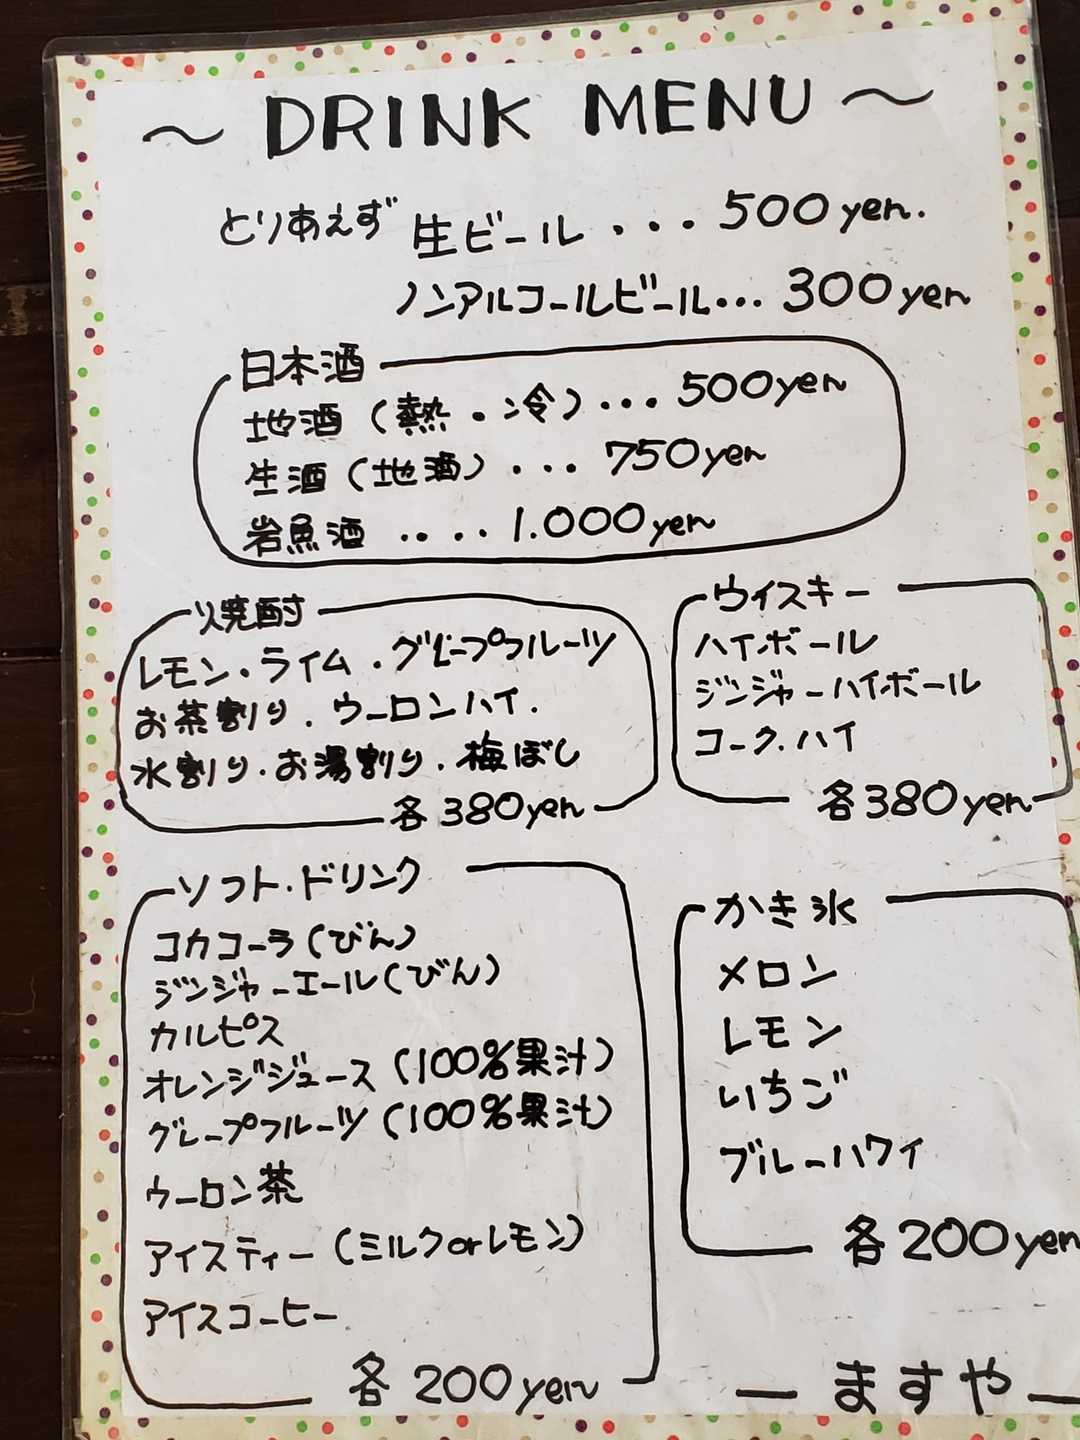 ～ DRINK MENU ～
とりあえず 生ビール ・・・ 500yen.
ノンアルコールビール・・・ 300yen
日本酒
地酒 (熱・冷) ・・・ 500yen
生酒 (地酒) ・・・ 750yen
岩魚酒 ・・・・ 1.000yen
焼酎
レモン・ライム・グレープフルーツ
お茶割り・ウーロンハイ・
水割り・お湯割り・梅ぼし
各380yen
ウイスキー
ハイボール
ジンジャーハイボール
コーク・ハイ
各380yen
ソフト・ドリンク
コカコーラ(びん)
ジンジャーエール(びん)
カルピス
オレンジジュース (100%果汁)
グレープフルーツ (100%果汁)
ウーロン茶
アイスティー (ミルクorレモン)
アイスコーヒー
各200yen
かき氷
メロン
レモン
いちご
ブルーハワイ
各200yen
ー ますや ー